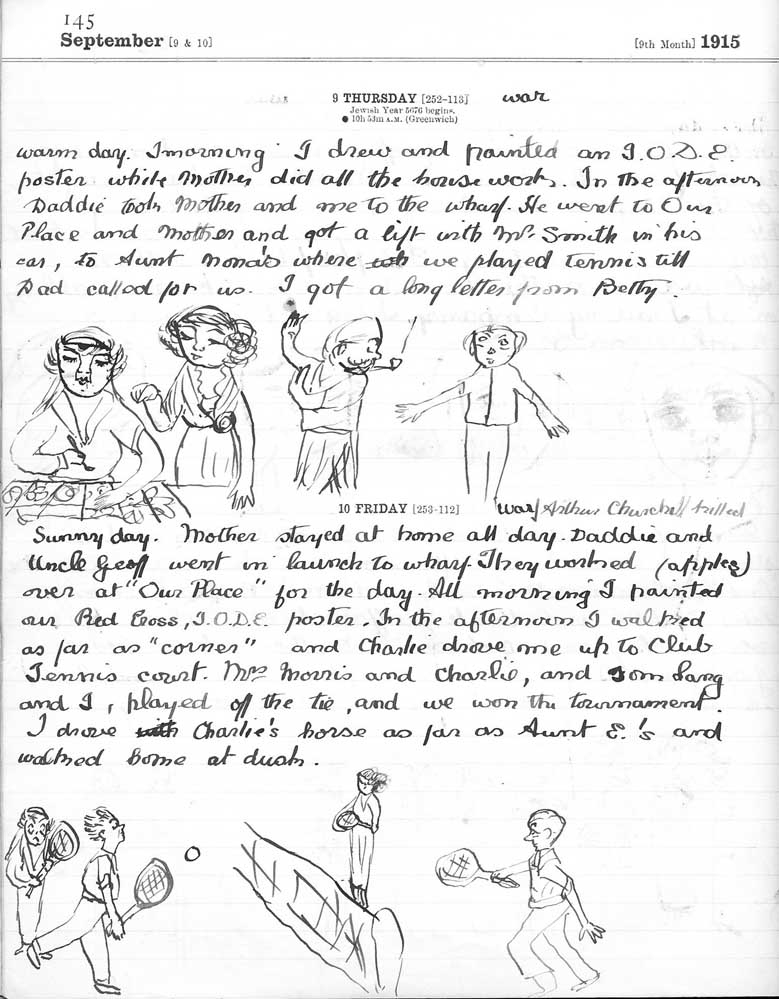 145
September [9 & 10] [9th Month] 1915
9 THURSDAY [252-113] war
Jewish Year 5676 begins.
● 10h 53m A.M. (Greenwich)
warm day. Imorning I drew and painted an I.O.D.E.
poster while Mother did all the house work. In the afternoon
Daddie took Mother and me to the wharf. He went to Our
Place and Mother and got a lift with Mr Smith in his
car, to Aunt Nona's where we played tennis till
Dad called for us. I got a long letter from Betty.
10 FRIDAY [253-112] war Arthur Churchill killed
Sunny day. Mother stayed at home all day. Daddie and
Uncle Geoff went in launch to wharf. They worked (apples)
over at "Our Place" for the day. All morning I painted
our Red Cross, I.O.D.E. poster. In the afternoon I walked
as far as "corner" and Charlie drove me up to Club
Tennis court. Mrs Morris and Charlie, and Tom Lang
and I, played off the tie, and we won the tournament.
I drove with Charlie's horse as far as Aunt E.'s and
walked home at dusk.